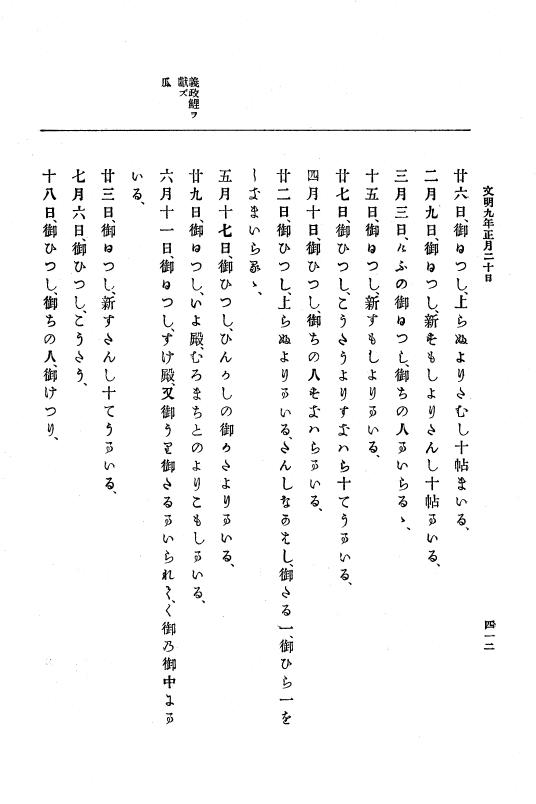 文明九年正月二十日
四一二
廿六日、御ひつし、上らぬよりさむし十帖まいる、
二月九日、御ひつし、新すもしよりさんし十帖まいる、
三月三日、けふの御ひつし、御ちの人まいらるゝ、
十五日、御ひつし、新すもしよりまいる、
廿七日、御ひつし、こうさうよりすはら十てうまいる、
四月十日、御ひつし、御ちの人すはらまいる、
廿二日、御ひつし、上らぬよりまいる、さんし御さる一、御ひら一を
しまいらるゝ、
五月十七日、御ひつし、ひんかしの御かさよりまいる、
廿九日、御ひつし、いよ殿、むろまちとのよりこもしまいる、
六月十一日、御ひつし、すけ殿、又御うり御さるまいられ〳〵御乃御中よりま
いる、
廿三日、御ひつし、新すさんし十てうまいる、
七月六日、御ひつし、こうさう、
十八日、御ひつし、御ちの人、御けつり、
義政鯉ヲ
獻ズ
瓜